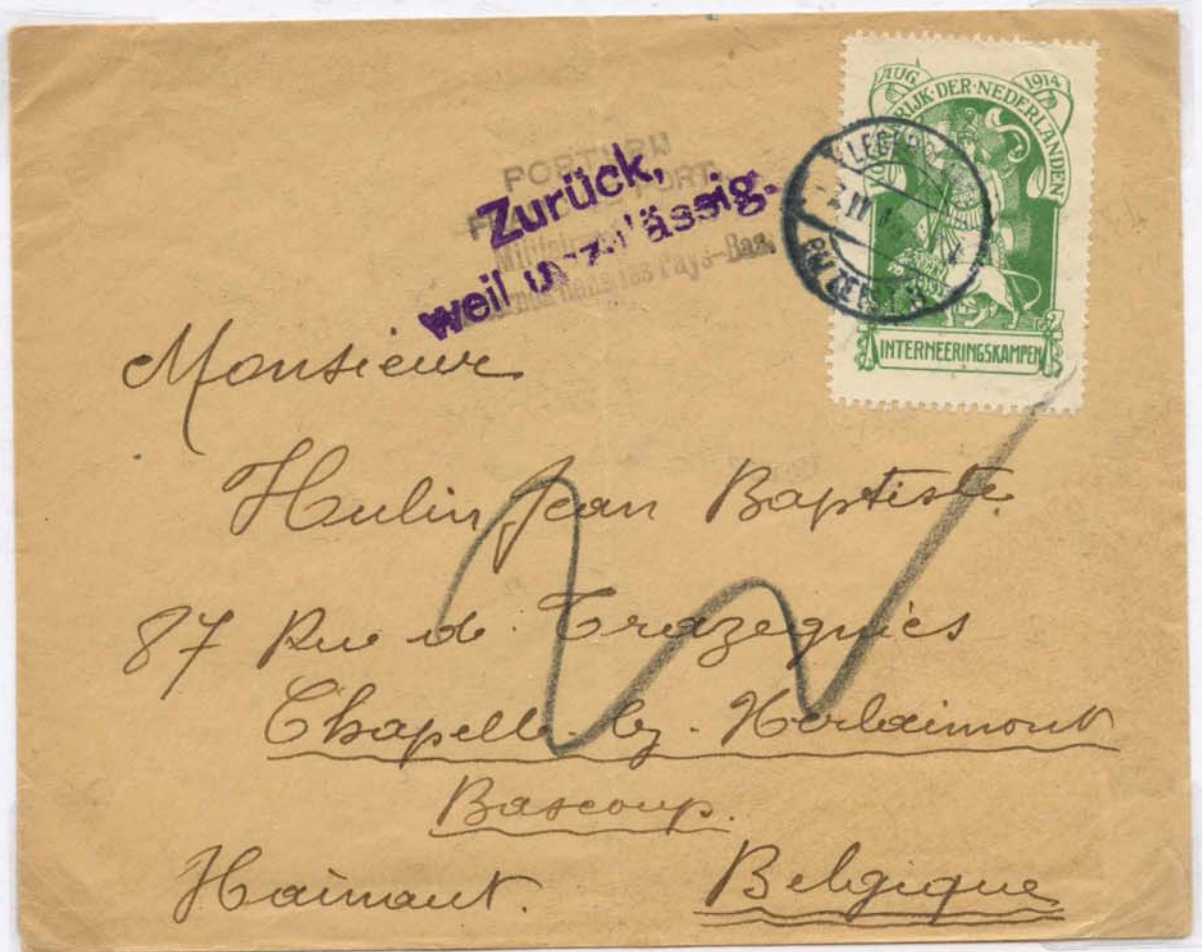 AUG. 1914
KONINKRIJK·DER·NEDERLANDEN
INTERNEERINGSKAMPEN
LEGERPL
BIJ ZEIST
PORTVRIJ
FRANC DE PORT.
Zurück,
weil unzulässig.
Militaires
internés dans les Pays-Bas.
Monsieur
Hulin Jean Baptiste
87 Rue de Trazegnies
Chapelle-lez-Herlaimont
Bascoup.
Hainaut. Belgique